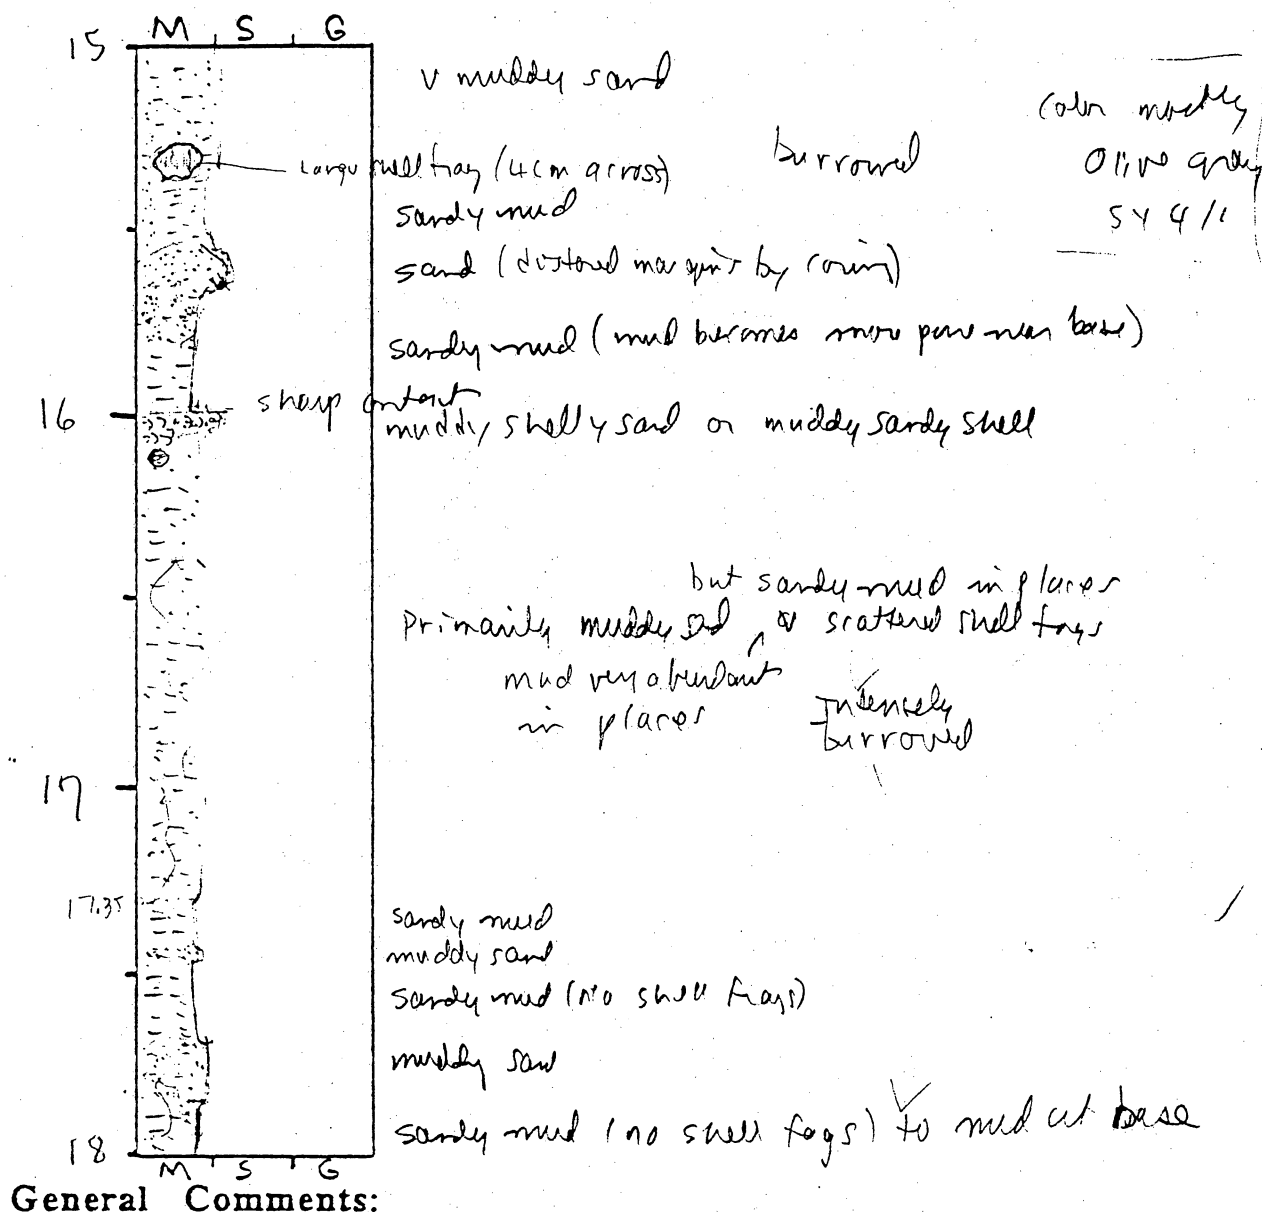 M S G
15
v muddy sand
color mostly
olive gray
5Y 4/1
burrowed
Large shell frag (4cm across)
sandy mud
sand (distored margins by coring)
sandy mud (mud becomes more pure near base)
16
sharp contact
muddy shelly sand or muddy sandy shell
but sandy mud in places
primarily muddy sd w scattered shell frags
mud very abundant
in places
Intensely
burrowed
17
17.35
sandy mud
muddy sand
sandy mud (no shell frags)
muddy san
sandy mud (no shell fags) to mud at base
18
M S G
General Comments: